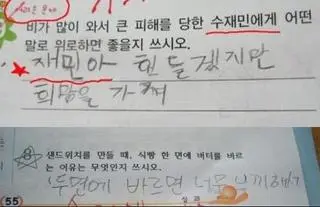 비가 많이 와서 큰 피해를 당한 수재민에게 어떤
말로 위로하면 좋을지 쓰시오.
재민아 힘들겠지만
희망을 가져
샌드위치를 만들 때, 식빵 한 면에 버터를 바르
는 이유는 무엇인지 쓰시오.
두면에 바르면 너무 부끼해서
55
실과